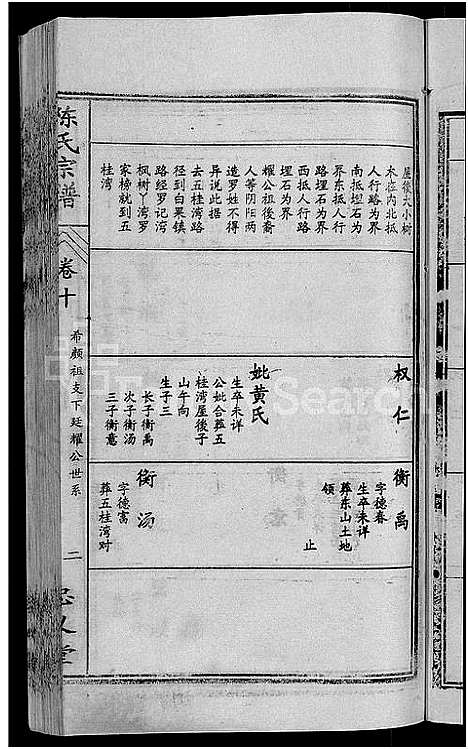 屋後大小树
木应内北抵
人行路为界
南抵埋石为
界东抵人行
路埋石为界
西抵人行路
埋石为界
耀公祖後裔
人等阴阳两
造罗姓不得
异说此据
去五桂湾路
径到白果镇
路经罗记湾
枫树丫湾罗
家榜就到五
桂湾
权仁
妣黄氏
生卒未详
公妣合葬五
桂湾屋後子
山午向
生子三
长子衡禹
次子衡汤
三子衡意
衡禹
字德春
生卒未详
葬东山土地
领
止
衡汤
字德富
葬五桂湾对
陈氏宗谱
卷十
希颜祖支下廷耀公世系
二
忠义堂
Search